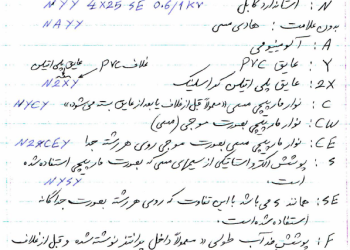 N : استاندارد کابل NYY 4x25 SE 0.6/1 KV
بدون علامت : هادی مسی NAYY
A : آلومینیومی
Y : عایق PVC غلاف PVC عایق پلی اتیلن
2X : عایق پلی اتیلن کراسلینک N2XY
C : نوار مارپیچی مسی «معمولاً قبل از غلاف یا بعد از عایق بست می‌شود» NYCY
CW : نوار مارپیچی بصورت موجی (مسی)
CE : نوار مارپیچی مسی بصورت موجی روی هر رشته جدا N2XCEY
S : پوشش الکترواستاتیکی از سیم‌های مسی که بصورت مارپیچی استفاده شده
است. NYSY
SE : همانند S می باشد با این تفاوت که روی هر رشته بصورت جداگانه
استفاده شده است.
F : پوشش ضد آب طولی «معمولاً داخل پرانتز نوشته شده و قبل از غلاف